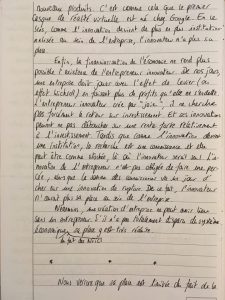 nouveaux produits. C'est comme cela que le premier
casque de réalité virtuelle est né chez Google. En ce
sens, comme l'innovation devient de plus en plus institution-
nalisée au sein de l'entreprise, l'innovateur n'a plus sa
place.
Enfin, la financiarisation de l'économie ne rend plus
possible l'existence de l'entrepreneur innovateur. De nos jours,
une entreprise doit jouer avec l'effet de levier (ou
effet Wicksell) en faisant plus de profits qu'elle ne s'endette.
L'entrepreneur innovateur crée par "joie", il ne cherche
pas forcément le retour sur investissement. Et ses innovations
peuvent ne pas déboucher sur une rente forte relativement
à l'investissement. Tandis que comme l'innovation devient
une institution, la recherche est une connaissance et elle
peut être comme stockée, là où l'innovateur serait seul. L'in-
novation de l'entreprise n'est pas obligée de faire une per-
cée, puisque la somme des connaissances va un jour dé-
cher sur une innovation de rupture. De ce fait, l'innovateur
n'aurait plus sa place au sein de l'entreprise.
Néanmoins, une création d'entreprise ne peut avoir lieu
sans un entrepreneur. S'il n'a pas totalement disparu du système
économique, sa place y est très réduite.
Nous verrons que sa place est laissée du fait de la